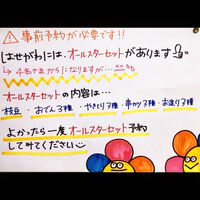 ⚠事前予約が必要です!!
はせがわには、オールスターセットがあります
↳4名さまからになりますが…
オールスターセットの内容は…
枝豆・おでん3種・やきとり3種・串カツ3種・お造り3種
よかったら一度オールスターセット予約
してみてください